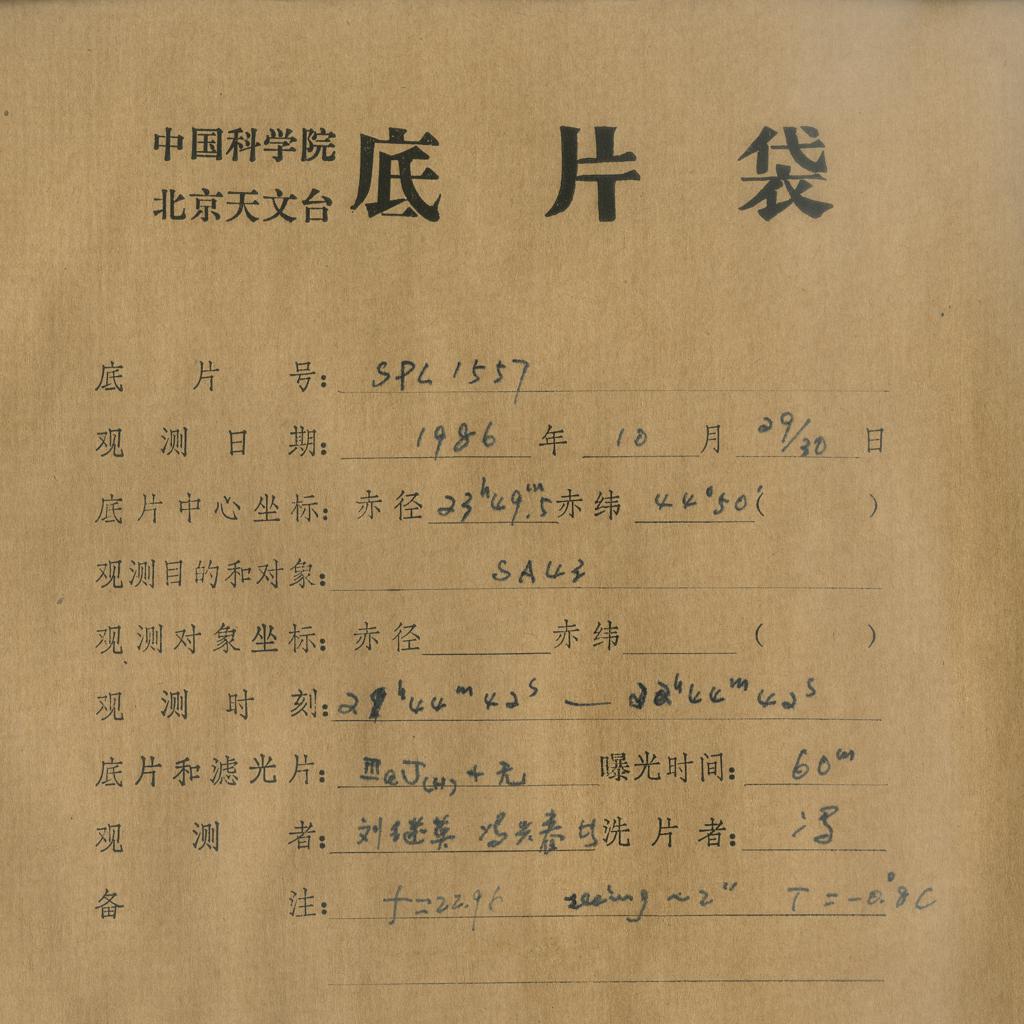 中国科学院
北京天文台
底片袋
底片号: SPL 1557
观测日期: 1986 年 10 月 29/30 日
底片中心坐标: 赤径 23ʰ49ᵐ.5 赤纬 44°50′( )
观测目的和对象: SA43
观测对象坐标: 赤径 赤纬 ( )
观测时刻: 21ʰ44ᵐ42ˢ — 22ʰ44ᵐ42ˢ
底片和滤光片: ⅢaJ(H) + 无 曝光时间: 60ᵐ
观测者: 刘继英 冯兴春 洗片者: 冯
备注: f=22.96 seeing ~2″ T=-0.°8C